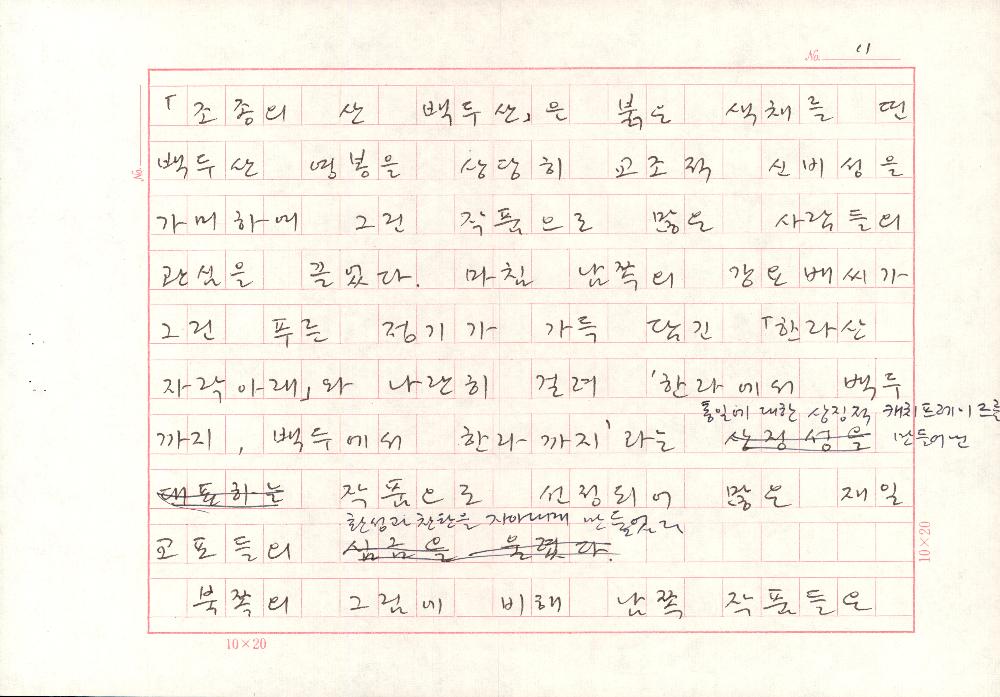 No. 11
「조종의 산 백두산」은 붉은 색채를 띤
백두산 영봉을 상당히 고조적 신비성을
가미하며 그린 작품으로 많은 사람들의
관심을 끌었다. 마침 남쪽의 강요배씨가
그린 푸른 정기가 가득 담긴 「한라산
자락아래」와 나란히 걸려 '한라에서 백두
통일에 대한 상징적 캐치프레이즈를
까지, 백두에서 한라까지'라는 상징성을 만들어낸
대표하는 작품으로 선정되어 많은 재일
환성과 찬탄을 자아내게 만들었다
교포들의 심금을 울렸다.
북쪽의 그림에 비해 남쪽 작품들은
No.
10×20
10×20